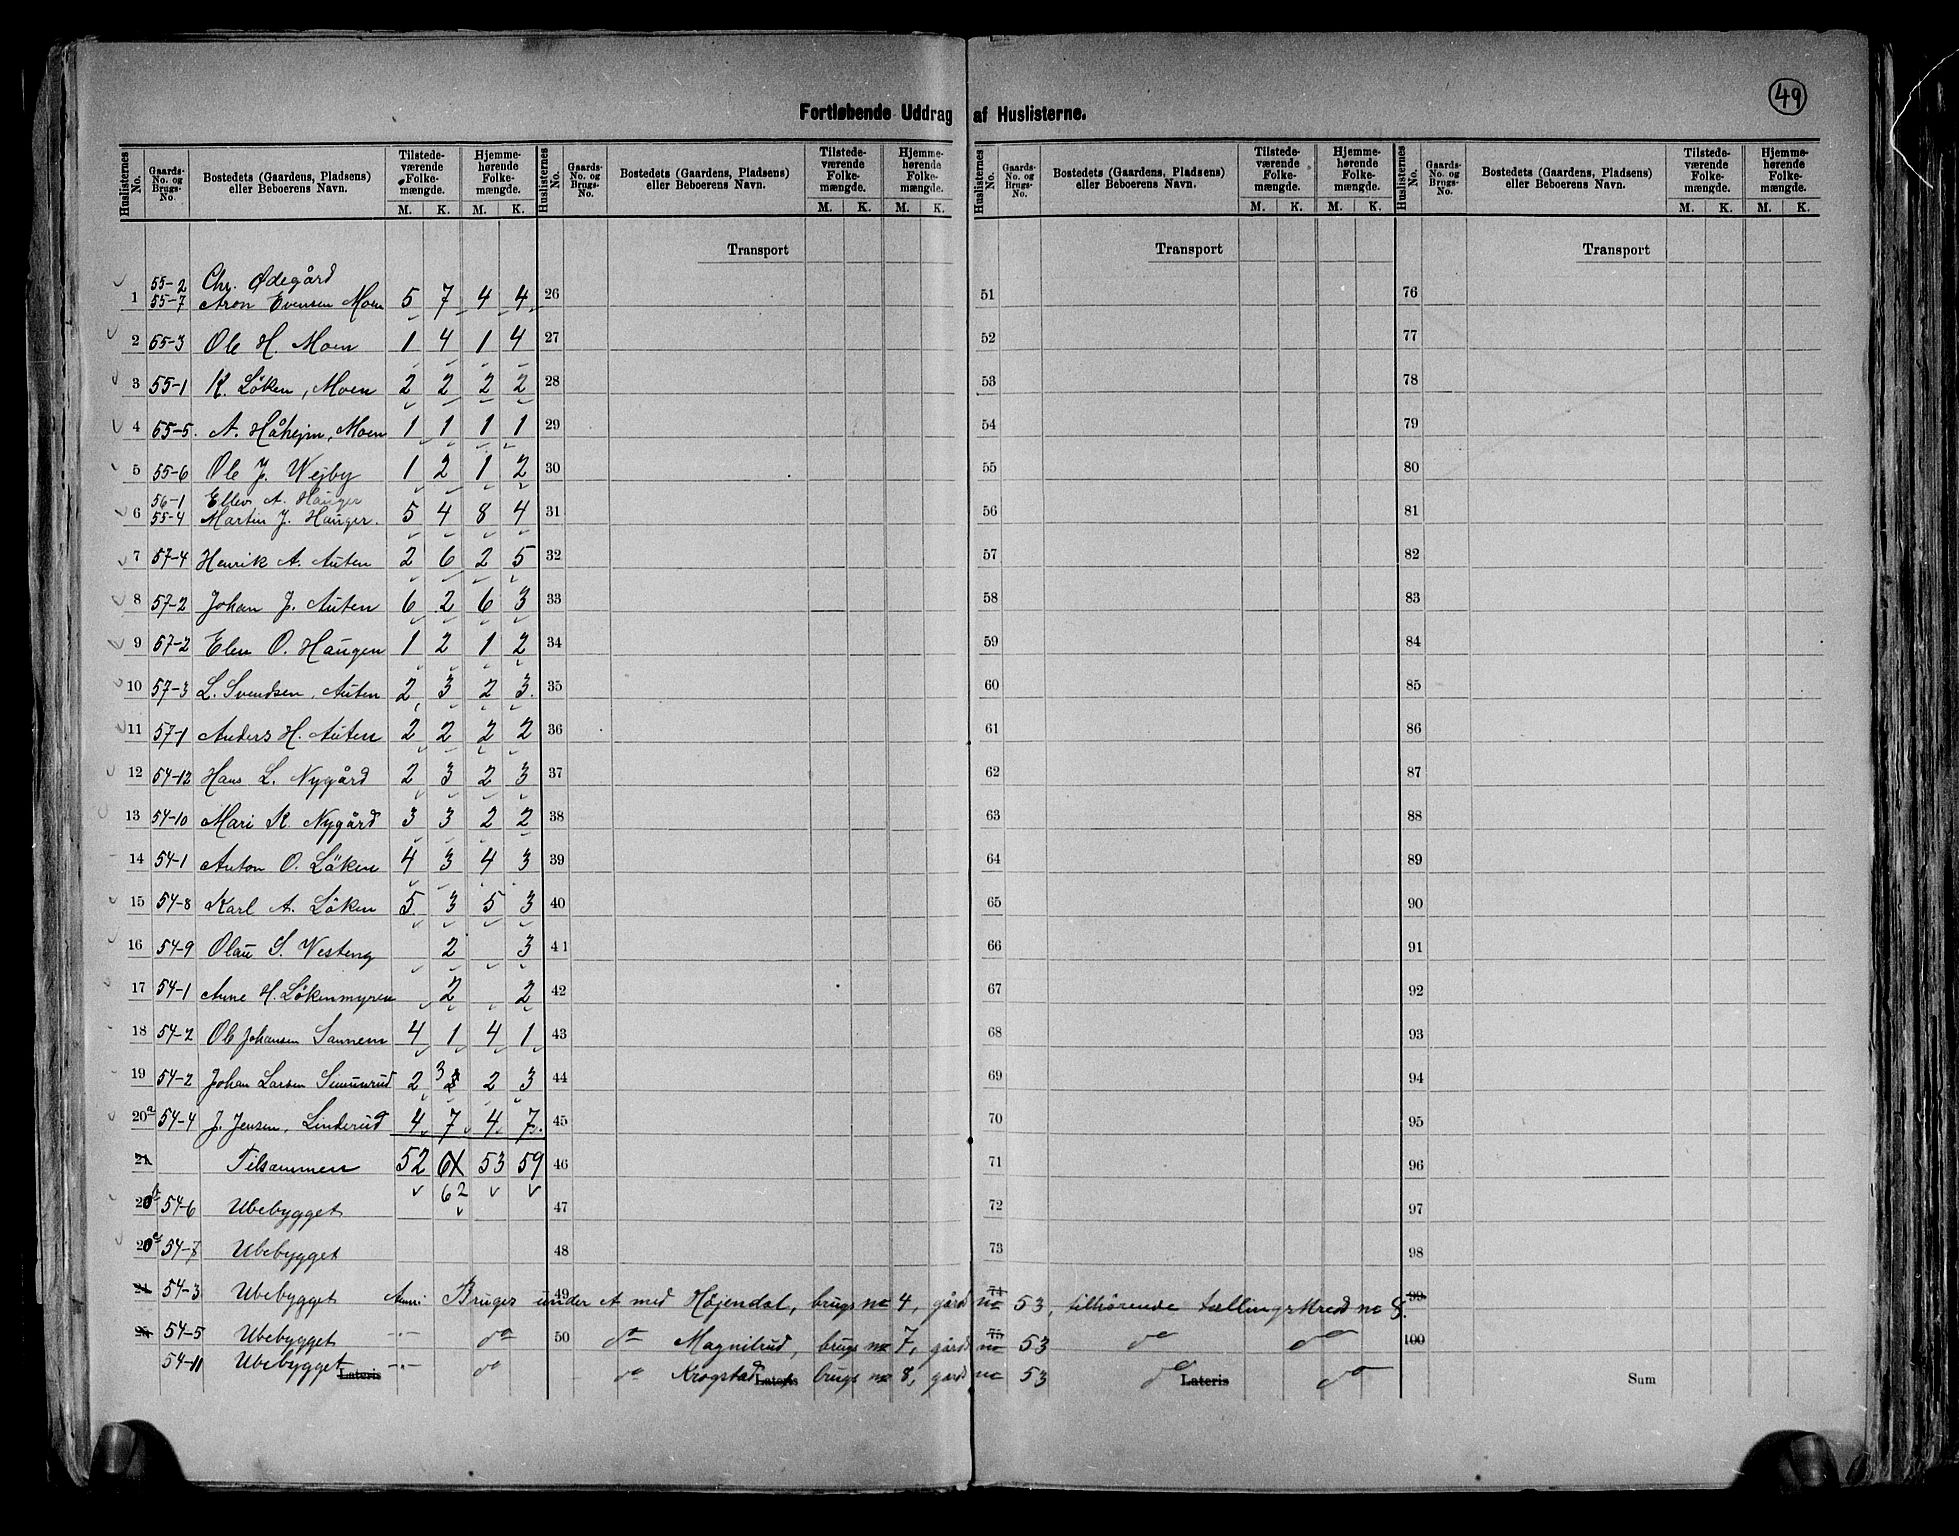 49
Fortløbende Uddrag af Huslisterne.
Huslisternes No. Gaards-No. og Brugs-No. Bostedets (Gaardens, Pladsens) eller Beboerens Navn. Tilstedeværende Folkemængde. M. K. Hjemmehørende Folkemængde. M. K.
Huslisternes No. Gaards-No. og Brugs-No. Bostedets (Gaardens, Pladsens) eller Beboerens Navn. Tilstedeværende Folkemængde. M. K. Hjemmehørende Folkemængde. M. K.
Huslisternes No. Gaards-No. og Brugs-No. Bostedets (Gaardens, Pladsens) eller Beboerens Navn. Tilstedeværende Folkemængde. M. K. Hjemmehørende Folkemængde. M. K.
Huslisternes No. Gaards-No. og Brugs-No. Bostedets (Gaardens, Pladsens) eller Beboerens Navn. Tilstedeværende Folkemængde. M. K. Hjemmehørende Folkemængde. M. K.
Transport Transport Transport
55-2 Chr. Ødegård
1 55-7 Aron Evensen Moen 5 7 4 4 26 51 76
2 55-3 Ole H. Moen 1 4 1 4 27 52 77
3 55-1 K. Löken, Moen 2 2 2 2 28 53 78
4 55-5. A. Håhejm, Moen 1 1 1 1 29 54 79
5 55-6 Ole J. Wejby 1 2 1 2 30 55 80
56-1 Ellev A. Hauger
6 55-4 Martin J. Hauger. 5 4 8 4 31 56 81
7 57-4 Henrik A. Auten 2 6 2 5 32 57 82
8 57-2 Johan J. Auten 6 2 6 3 33 58 83
9 57-2 Elen O. Haugen 1 2 1 2 34 59 84
10 57-3 L. Svendsen, Auten 2 3 2 3. 35 60 85
11 57-1 Anders H. Auten 2 2 2 2 36 61 86
12 54-12 Hans L. Nygård 2 3 2 3 37 62 87
13 54-10 Mari K. Nygård 3 3 2 2 38 63 88
14 54-1 Anton O. Löken 4 3 4 3 39 64 89
15 54-8 Karl A. Löken 5 3 5 3 40 65 90
16 54-9 Olau S. Westeng 2 3 41 66 91
17 54-1 Anne H. Lökenmyren 2 2 42 67 92
18 54-2 Ole Johansen Sannem 4 1 4 1 43 68 93
19 54-2 Johan Larsen Simunrud 2 3 2 3 44 69 94
20a 54-4 J. Jensen, Linderud 4 7 4 7. 45 70 95
21 Tilsammen 52 61 53 59 46 71 96
62
20b 54-6 Ubebygget 47 72 97
20c 54-7 Ubebygget 48 73 98
24 54-3 Ubebygget Anm: Bruges under et med Højendal, brugs no 4, gård no 53, tilhörende tællingskred no 8. 49 74 99
25 54-5 Ubebygget -"- do 50 do Magnilrud, brugs no 7, gård no 53 do do 75 100
54-11 Ubebygget -"- do do Krogstad brugs no 8, gård no 53 do do
Lateris Lateris Lateris Sum